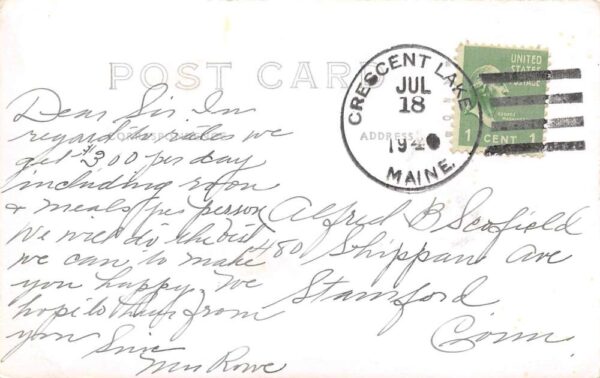 POST CARD
CORRESPONDENCE
ADDRESS
CRESCENT LAKE
JUL
18
MAINE.
UNITED
STATES
POSTAGE
1 CENT 1
Dear Sir. In
regard to rates we
get $3.00 per day
including room
& meals per person
We will do the best
we can to make
you happy. We
hope to hear from
you
Sinc
Mrs Rowe
Alfred B Scofield
480 Shippan Ave
Stamford
Conn.